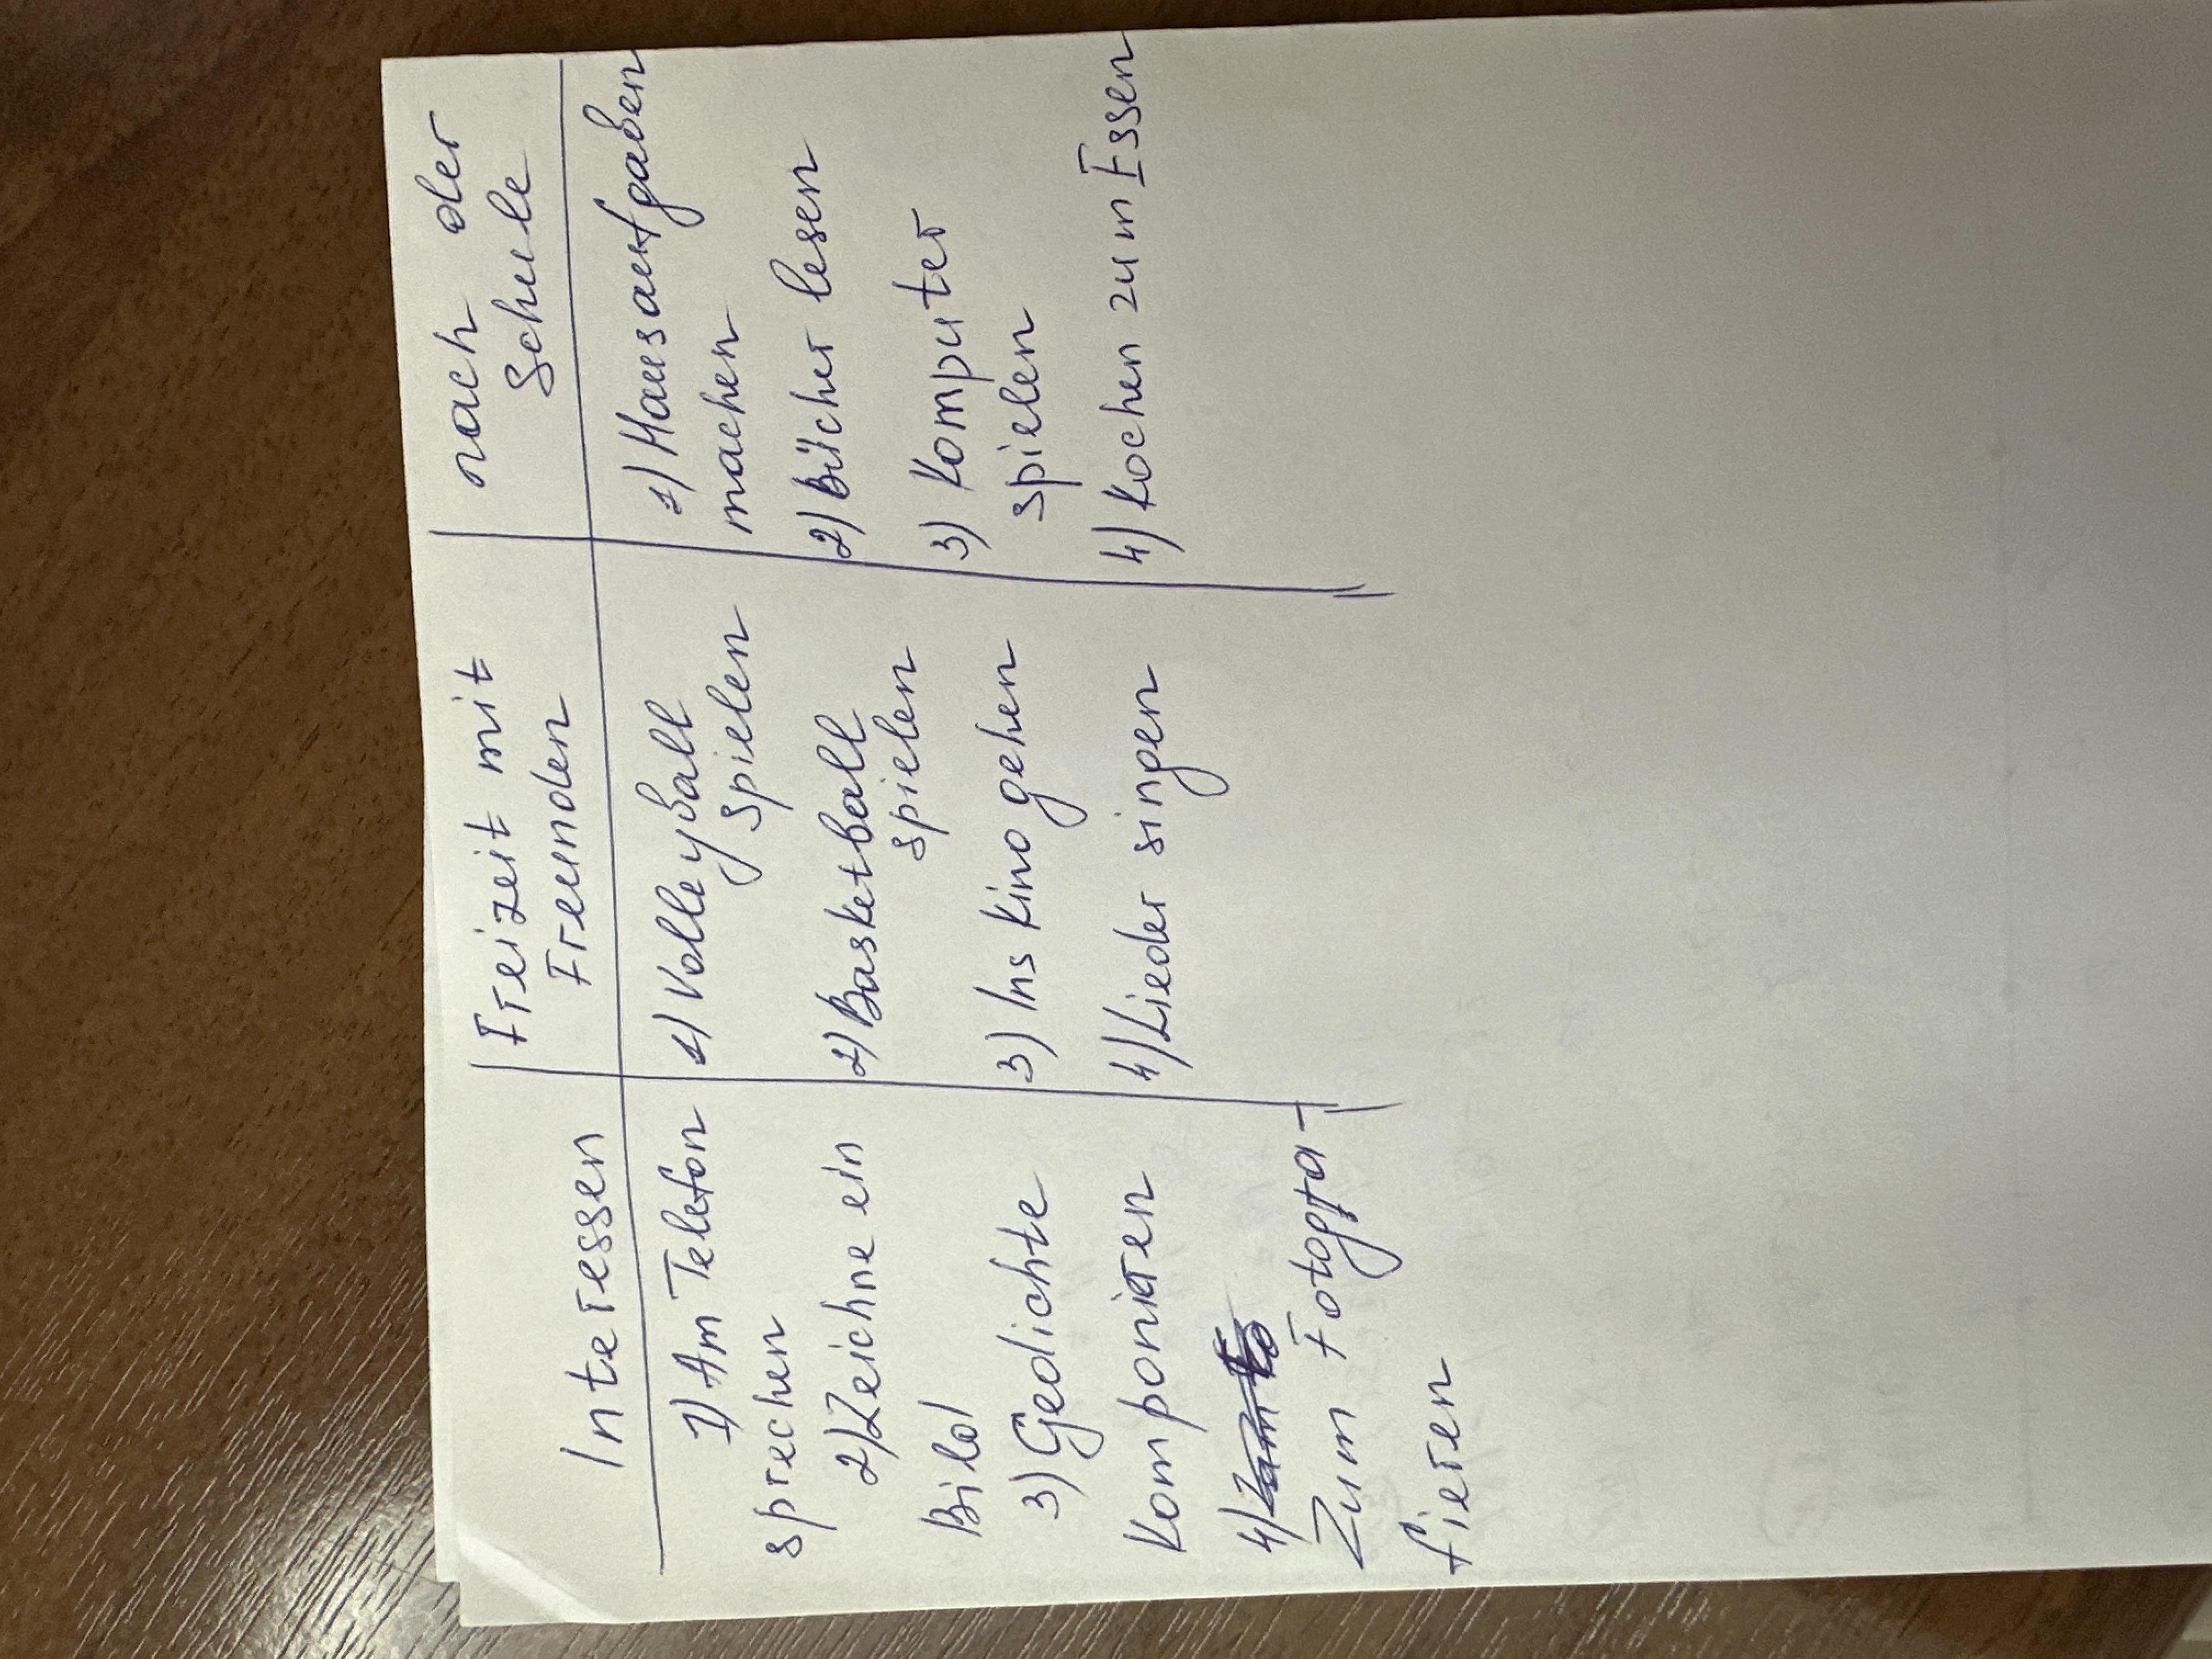 Interessen
1) Am Telefon
sprechen
2) Zeichne ein
Bild
3) Gedichte
Komponieren
4)
Zum Fotogra-
fieren
Freizeit mit
Freunden
1) Volleyball
spielen
2) Basketball
spielen
3) Ins Kino gehen
4) Lieder singen
nach der
Schule
1) Hausaufgaben
machen
2) Bücher lesen
3) Komputer
spielen
4) Kochen zum Essen